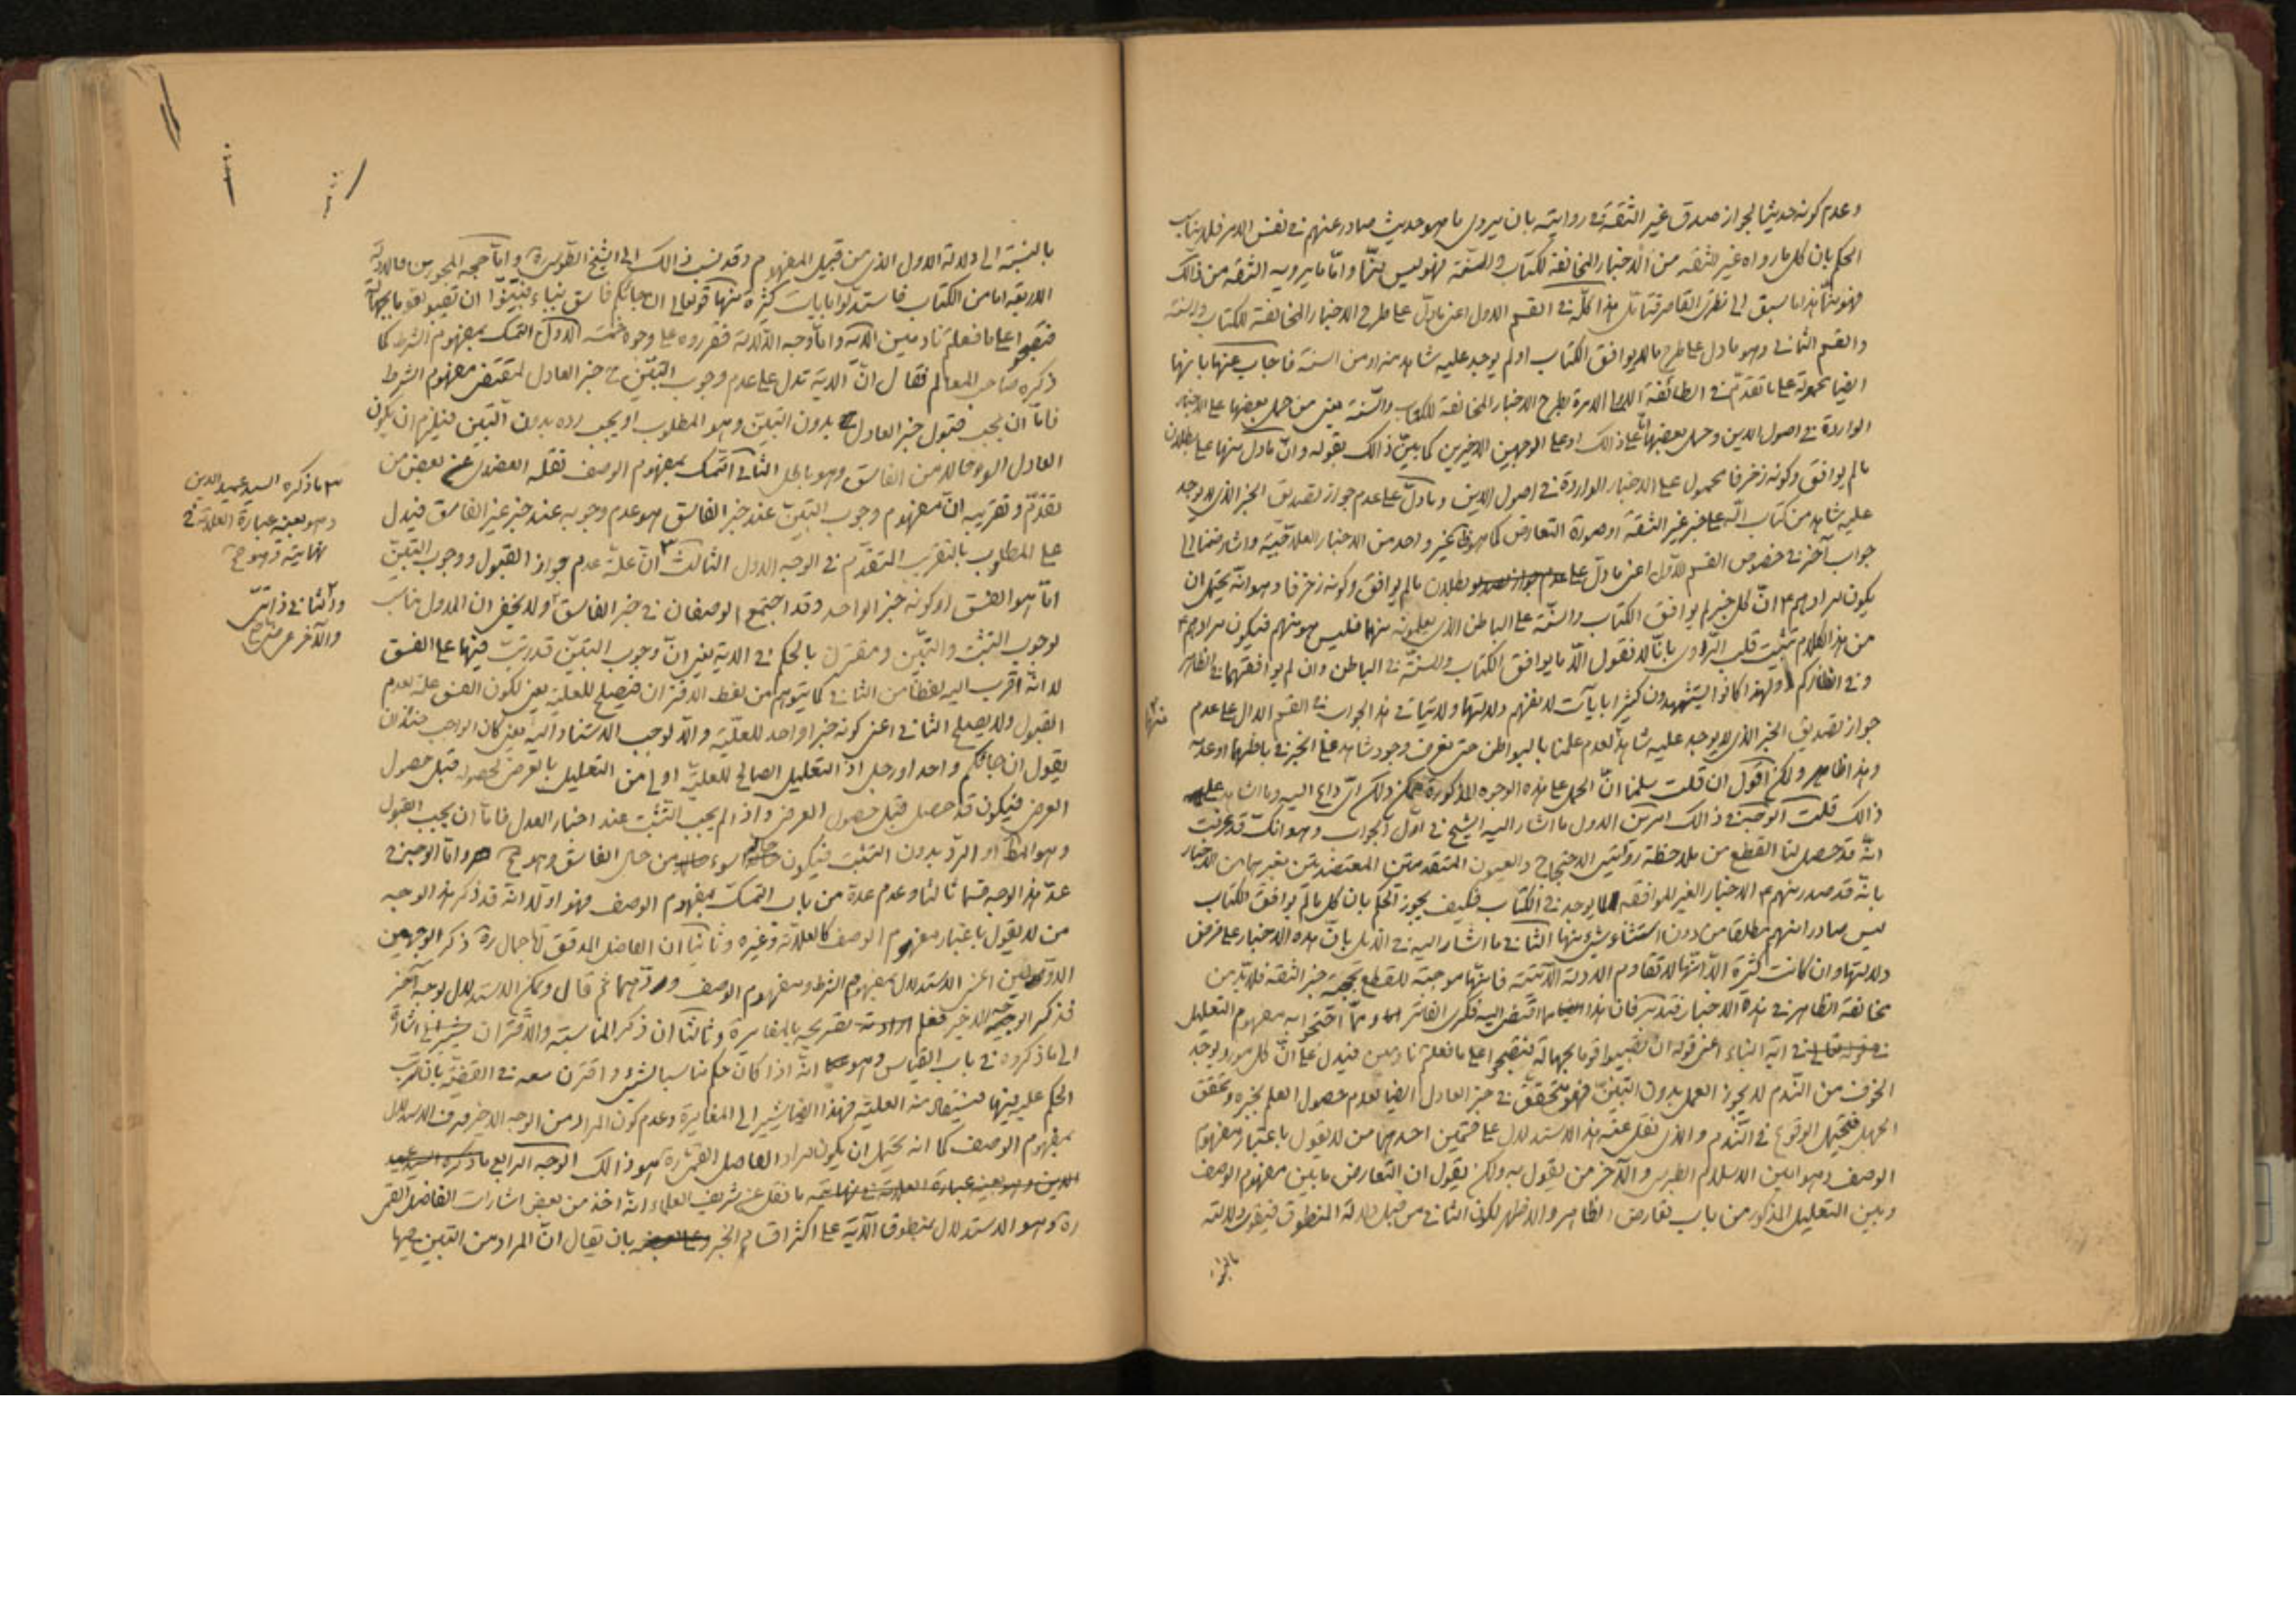 وعدم كونه حديثا لجواز صدق غير الثقة في روايته بان يروى ما هو حديث صادر عنهم في نفس الامر فلا يناسب
الحكم بان كل ما رواه غير الثقه من الاخبار المخالفة للكتاب والسنة فهو ليس منّا وامّا ما يرويه الثقة من ذالك
فهو منّا هذا ما سبق الى نظرى القاصر فتأمّل هذا كلّه في القسم الاول اعنى ما دلّ على طرح الاخبار المخالفة للكتاب والسنة
والقسم الثانى وهو ما دل على طرح ما لا يوافق الكتاب او لم يوجد عليه شاهد منه او من السنة فاجاب عنها بانها
ايضا محمولة على ما تقدّم في الطائفة الامرة بطرح الاخبار المخالفة للكتاب والسّنة يعنى من حمل بعضها على الاخبار
الواردة في اصول الدين وحمل بعضها على ذالك او على الوجهين الاخيرين كما بيّن ذالك بقوله وانّ ما دل منها على بطلان
ما لم يوافق وكونه زخرفا محمول على الاخبار الواردة في اصول الدين وما دلّ على عدم جواز تصديق الخبر الذى لا يوجد
عليه شاهد من كتاب الله على خبر غير الثقة او صورة التعارض كما هو ظ غير واحد من الاخبار العلاجيّة واشار ضمنا الى
جواب آخر في خصوص القسم الاوّل اعنى ما دلّ على بطلان ما لم يوافق وكونه زخرفا وهو انّه يحتمل ان
يكون مرادهم ع انّ كل خبر لم يوافق الكتاب والسنّة على الباطن الذى يعلمونه منها فليس هو منهم فيكون مرادهم ع
من هذا الكلام تثبت قلب الرّاوى بانّا لا نقول الّا ما يوافق الكتاب والسنّة في الباطن وان لم يوافقهما في الظاهر
وفي انظاركم ولهذا كانوا يستشهدون كثيرا بايآت لا نفهم دلالتها ولا يتأتى هذا الجواب في القسم الدال على عدم
منها
جواز تصديق الخبر الذى لا يوجد عليه شاهد لعدم علمنا بالبواطن حتى نعرف وجود شاهد على الخبر في باطنها او عدمه
وهذا ظاهر ولكن اقول ان قلت سلّمنا انّ الحمل على هذه الوجوه المذكورة ممكن ولكن اىّ داع اليه وما الشاهد عليه
ذالك قلت الوجه في ذالك امرين الاول ما اشار اليه الشيخ في اوّل الجواب وهو انّك قد عرفت
انّه قد حصل لنا القطع من ملاحظة روايتى الاحتجاج والعيون المتقدمتين المعتضدتين بغيرهما من الاخبار
بانّه قد صدر منهم ع الاخبار الغير الموافقه لما يوجد في الكتاب فكيف يجوز الحكم بان كل ما لم يوافق الكتاب
ليس صادرا منهم مطلقا من دون استثناء شيء منها الثانى ما اشار اليه في الذيل بانّ هذه الاخبار على فرض
دلالتها وان كانت كثيرة الّا انّها لا تقاوم الادلة الآتية فانّها موجبة للقطع بحجية خبر الثقة فلا بدّ من
مخالفة الظاهر في هذة الاخبار فتدبّر فان هذا ما اقتضى اليه فكرى الفاتر وممّا احتجّوا به مفهوم التعليل
في اية النباء اعنى قوله ان تصيبوا قوما بجهالة فتصبحوا على ما فعلتم نادمين فيدل على انّ كل مورد يوجد
الخوف من النّدم لا يجوز العمل بدون التبيّن فهو متحقق في خبر العادل ايضا لعدم حصول العلم بخبره وتحقق
الجهل فيحتمل الوقوع في النّدم والذى نقل عنه هذا الاستدلال على قسمين احدهما من لا يقول باعتبار مفهوم
الوصف وهو امين الاسلام الطبرسى والآخر من يقول به ولكن يقول ان التعارض ما بين مفهوم الوصف
وبين التعليل المذكور من باب تعارض الظاهر والاظهر لكون الثانى من قبيل دلالة المنطوق فيقوى دلالته
بالنسبة
بالنسبة الى دلالة الاول الذى من قبيل المفهوم وقد نسب ذالك الى الشيخ الطوسى ره وامّا حجة المجوزين فالادلة
الاربعة اما من الكتاب فاستدلّوا بايات كثيرة منها قوله تعالى ان جائكم فاسق بنباء فتبيّنوا ان تصيبوا قوما بجهالة
فتصبحوا على ما فعلتم نادمين الآية وامّا وجه الدّلالة فقرروه على وجوه خمسة الاوّل التمسك بمفهوم الشرط كما
ذكره صاحب المعالم فقال انّ الاية تدل على عدم وجوب التبيّن في خبر العادل لمقتضى مفهوم الشرط
فامّا ان يجب قبول خبر العادل بدون التبيّن وهو المطلوب او يجب رده بدون التبيّن فيلزم ان يكون
العادل اسوء حالا من الفاسق وهو باطل الثانى التمسك بمفهوم الوصف نقله العضدى عن بعض من
تقدّم وتقريبه انّ مفهوم وجوب التبيّن عند خبر الفاسق هو عدم وجوبه عند خبر غير الفاسق فيدل
على المطلوب بالتقريب المتقدّم في الوجه الاول الثالث انّ علّة عدم جواز القبول ووجوب التبيّن
امّا هو الفسق او كونه خبر الواحد وقد اجتمع الوصفان في خبر الفاسق ولا يخفى ان الاول مناسب
لوجوب التثبّت والتبيّن ومقترن بالحكم في الاية يعنى انّ وجوب التبيّن قد رتّب فيها على الفسق
لا انّه اقرب اليه لفظا من الثانى كما يتوهم من لفظ الاقتران فيصلح للعليّة يعنى لكون الفسق علّة لعدم
القبول ولا يصلح الثانى اعنى كونه خبرا واحدا للعلّية والّا لوجب الاستناد اليه يعنى كان الواجب حينئذ ان
يقول ان جائكم واحد او رجل اذ التعليل الصالح للعليّة اولى من التعليل بالعرضى لحصوله قبل حصول
العرضى فيكون قد حصل قبل حصول العرضى واذا لم يجب التثبّت عند اخبار العدل فامّا ان يجب القبول
وهو المط او الرّد بدون التثبّت فيكون حاله اسوء من حال الفاسق وهو مح وامّا الوجه في
عدّ هذا الوجه قسما ثالثا وعدم عدّه من باب التمسك بمفهوم الوصف فهو اولا انّه قد ذكر هذا الوجه
من لا يقول باعتبار مفهوم الوصف كالعلامة وغيره وثانيا ان الفاضل المدقق الآجمال ره ذكر الوجهين
الاوّلين اعنى الاستدلال بمفهوم الشرط ومفهوم الوصف وردّهما ثم قال ويمكن الاستدلال بوجه آخر
فذكر الوجه الاخير فعلم تصريحه بالمغايرة وثالثا ان ذكر المناسبة والاقتران يشير الى اشارة
الى ما ذكروه في باب القياس وهو انّه اذا كان حكم مناسبا لشيء واقترن معه في القضيّة بان ترتّب
الحكم عليه فيها فيستفاد منه العليّة فهذا ايضا يشير الى المغايرة وعدم كون المراد من الوجه الاخير صرف الاستدلال
بمفهوم الوصف كما انه يحتمل ان يكون مراد الفاضل القمى ره هو ذالك الوجه الرابع ما ذكره السيد عميد
الدين وهو بعينه عبارة العلامة في نهايته ما نقل عن شريف العلماء انّه اخذ من بعض اشارات الفاضل القمى
ره وهو الاستدلال بمنطوق الآية على اكثر اقسام الخبر بان يقال انّ المراد من التبيّن فيها
ما ذكره السيد عميد الدين
وهو بعينه عبارة العلامة في
نهايته وهو ح
والثانى ذاتىّ
والآخر عرضى